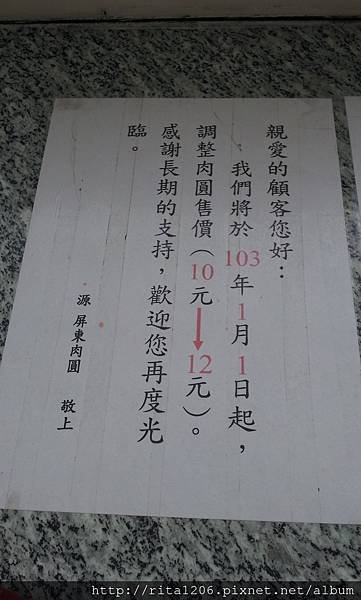 親愛的顧客您好：
我們將於103年1月1日起，
調整肉圓售價（10元→12元）。
感謝長期的支持，歡迎您再度光
臨。
源 屏東肉圓 敬上
http://rita1206.pixnet.net/album